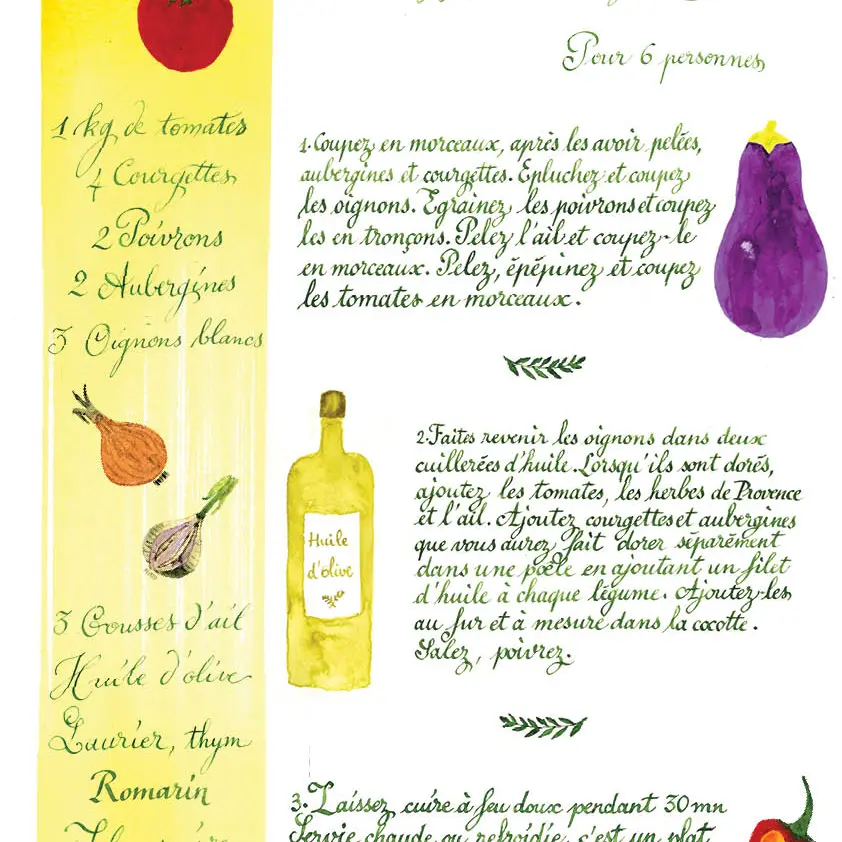 Pour 6 personnes
1 kg de tomates
4 Courgettes
2 Poivrons
2 Aubergines
3 Oignons blancs
3 Gousses d'ail
Huile d'olive
Laurier, thym
Romarin
1. Coupez en morceaux, après les avoir pelées,
aubergines et courgettes. Epluchez et coupez
les oignons. Egrainez les poivrons et coupez
les en tronçons. Pelez l'ail et coupez-le
en morceaux. Pelez, épépinez et coupez
les tomates en morceaux.
Huile
d'olive
2. Faites revenir les oignons dans deux
cuillerées d'huile. Lorsqu'ils sont dorés,
ajoutez les tomates, les herbes de Provence
et l'ail. Ajoutez courgettes et aubergines
que vous aurez fait dorer séparément
dans une poêle en ajoutant un filet
d'huile à chaque légume. Ajoutez-les
au fur et à mesure dans la cocotte.
Salez, poivrez.
3. Laissez cuire à feu doux pendant 30 mn
Servie chaude ou refroidie, c'est un plat